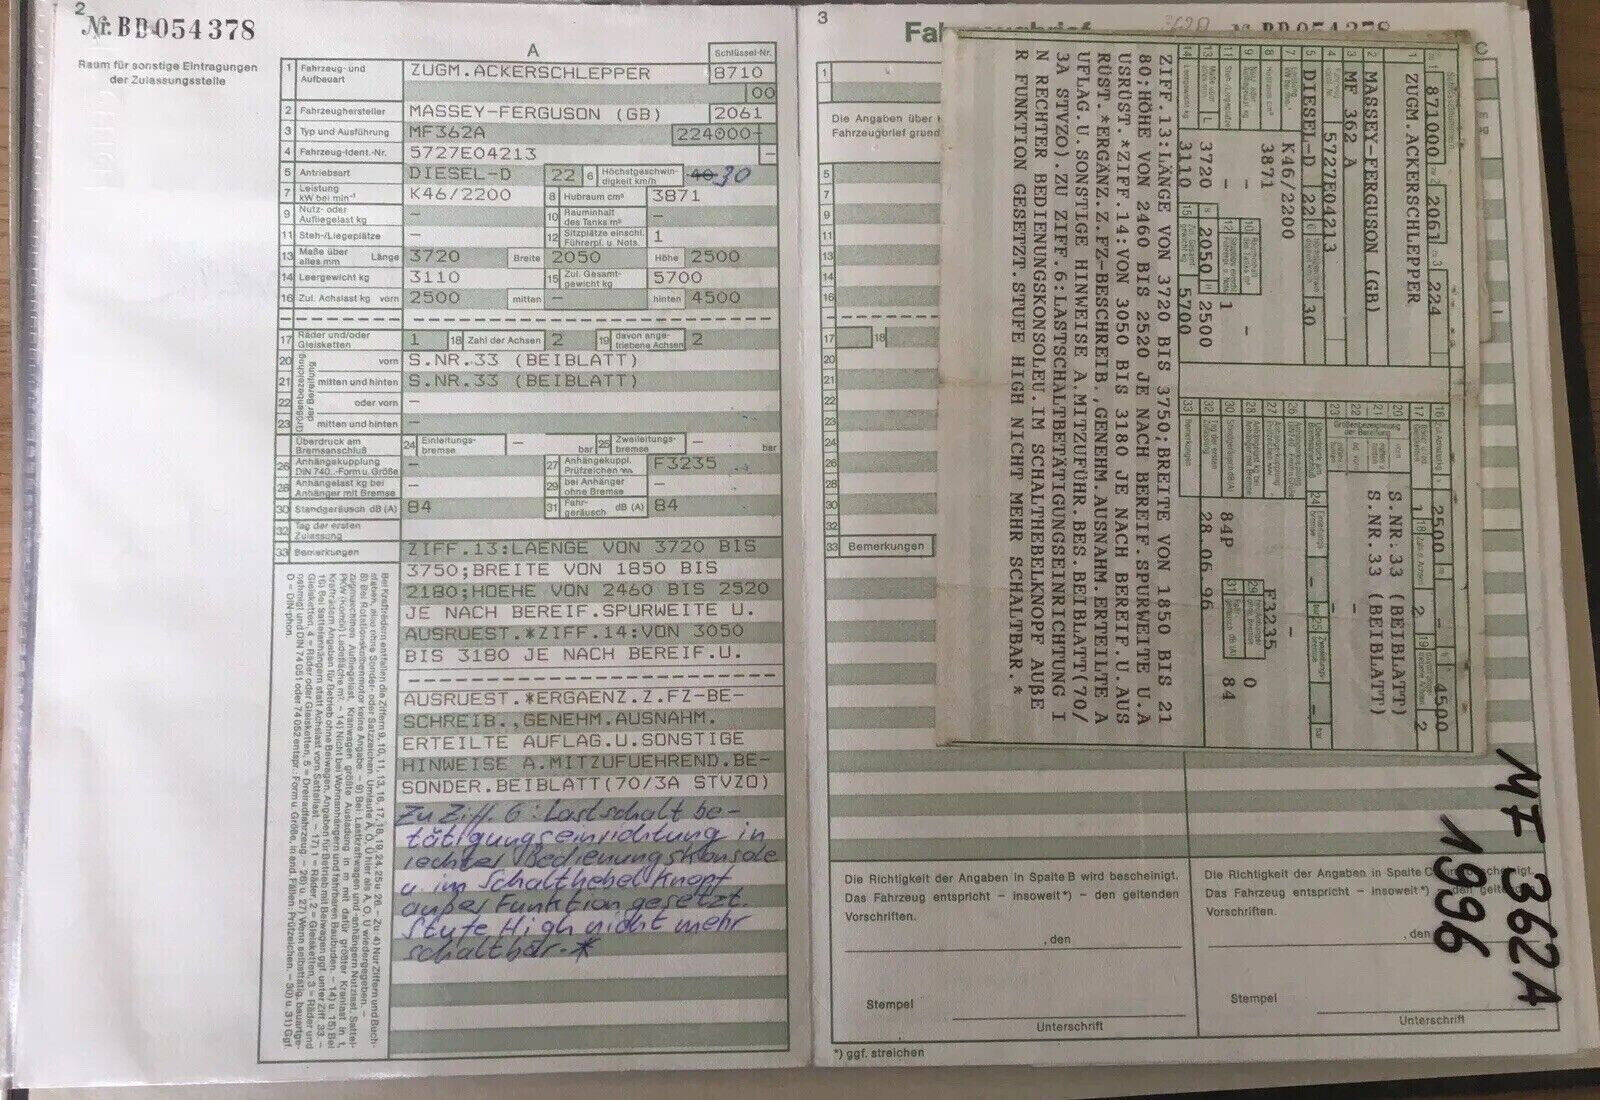 2
Nr. BD054378
Raum für sonstige Eintragungen
der Zulassungsstelle
A
Schlüssel-Nr.
1 Fahrzeug- und Aufbauart ZUGM.ACKERSCHLEPPER 8710
00
2 Fahrzeughersteller MASSEY-FERGUSON (GB) 2061
3 Typ und Ausführung MF362A 224000-
4 Fahrzeug-Ident.-Nr. 5727E04213 -
5 Antriebsart DIESEL-D 22 6 Höchstgeschwindigkeit km/h 40 30
7 Leistung kW bei min⁻¹ K46/2200 8 Hubraum cm³ 3871
9 Nutz- oder Aufliegelast kg - 10 Rauminhalt des Tanks m³ -
11 Steh-/Liegeplätze - 12 Sitzplätze einschl. Führerpl. u. Nots. 1
13 Maße über alles mm Länge 3720 Breite 2050 Höhe 2500
14 Leergewicht kg 3110 15 Zul. Gesamtgewicht kg 5700
16 Zul. Achslast kg vorn 2500 mitten - hinten 4500
17 Räder und/oder Gleisketten 1 18 Zahl der Achsen 2 19 davon angetriebene Achsen 2
Größenbezeichnung der Bereifung
20 vorn S.NR.33 (BEIBLATT)
21 mitten und hinten S.NR.33 (BEIBLATT)
22 oder vorn -
23 mitten und hinten -
Überdruck am Bremsanschluß 24 Einleitungsbremse - bar 25 Zweileitungsbremse - bar
26 Anhängekupplung DIN 740..-Form u. Größe - 27 Anhängekuppl. Prüfzeichen F3235
28 Anhängelast kg bei Anhänger mit Bremse - 29 bei Anhänger ohne Bremse -
30 Standgeräusch dB (A) 84 31 Fahrgeräusch dB (A) 84
32 Tag der ersten Zulassung
33 Bemerkungen ZIFF.13:LAENGE VON 3720 BIS
3750;BREITE VON 1850 BIS
2180;HOEHE VON 2460 BIS 2520
JE NACH BEREIF.SPURWEITE U.
AUSRUEST.*ZIFF.14:VON 3050
BIS 3180 JE NACH BEREIF.U.
AUSRUEST.*ERGAENZ.Z.FZ-BE-
SCHREIB.,GENEHM.AUSNAHM.
ERTEILTE AUFLAG.U.SONSTIGE
HINWEISE A.MITZUFUEHREND.BE-
SONDER.BEIBLATT(70/3A STVZO)
Zu Ziff. 6: Lastschalt be-
tätigungseinrichtung in
rechter Bedienungskonsole
u. im Schalthebel Knopf
außer Funktion gesetzt.
Stufe High nicht mehr
schaltbar.*
3
Nr. BD054378
C
1
Die Angaben über
Fahrzeugbrief grund
5
7
9
11
13
14
16
17 18
20
21
22
23
24
26
28
30
32
33 Bemerkungen
871000 2 2061 3 224
1 ZUGM.ACKERSCHLEPPER
2 MASSEY-FERGUSON (GB)
3 MF 362 A
4 5727E04213
5 DIESEL-D 22 6 30
7 K46/2200
8 3871
9 - 10 -
11 - 12 1
13 L 3720 B 2050 H 2500
14 3110 15 5700
16 2500 4500
17 1 18 2 19 2
20 S.NR.33 (BEIBLATT)
21 S.NR.33 (BEIBLATT)
22 -
23 -
24 - 25 - bar
26 -
27 F3235
28 29 0
30 84P 31 84
32 28.06.96
33
ZIFF.13:LÄNGE VON 3720 BIS 3750;BREITE VON 1850 BIS 21
80;HÖHE VON 2460 BIS 2520 JE NACH BEREIF.SPURWEITE U.A
USRÜST.*ZIFF.14:VON 3050 BIS 3180 JE NACH BEREIF.U.AUS
RÜST.*ERGÄNZ.Z.FZ-BESCHREIB.,GENEHM.AUSNAHM.ERTEILTE A
UFLAG.U.SONSTIGE HINWEISE A.MITZUFÜHR.BES.BEIBLATT(70/
3A STVZO).ZU ZIFF.6:LASTSCHALTBETÄTIGUNGSEINRICHTUNG I
N RECHTER BEDIENUNGSKONSOLEU.IM SCHALTHEBELKNOPF AUßE
R FUNKTION GESETZT.STUFE HIGH NICHT MEHR SCHALTBAR.*
MF 362A
1996
Die Richtigkeit der Angaben in Spalte B wird bescheinigt.
Das Fahrzeug entspricht – insoweit*) – den geltenden
Vorschriften.
, den
Stempel
Unterschrift
Die Richtigkeit der Angaben in Spalte C
Das Fahrzeug entspricht – insoweit*) – den
Vorschriften.
, den
Stempel
Unterschrift
*) ggf. streichen